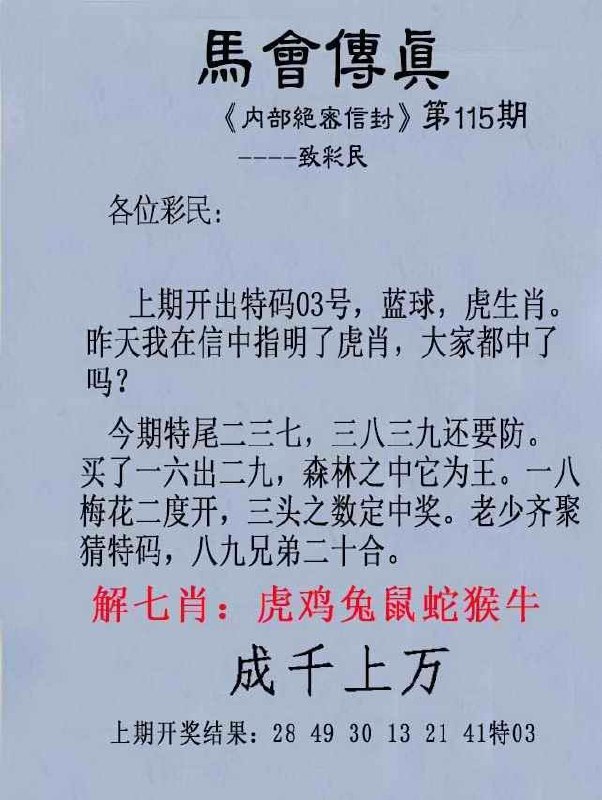 馬會傳眞
《内部絕密信封》第115期
----致彩民
各位彩民:
上期开出特码03号，蓝球，虎生肖。
昨天我在信中指明了虎肖，大家都中了
吗?
今期特尾二三七，三八三九还要防。
买了一六出二九，森林之中它为王。一八
梅花二度开，三头之数定中奖。老少齐聚
猜特码，八九兄弟二十合。
解七肖：虎鸡兔鼠蛇猴牛
成千上万
上期开奖结果: 28 49 30 13 21 41特03